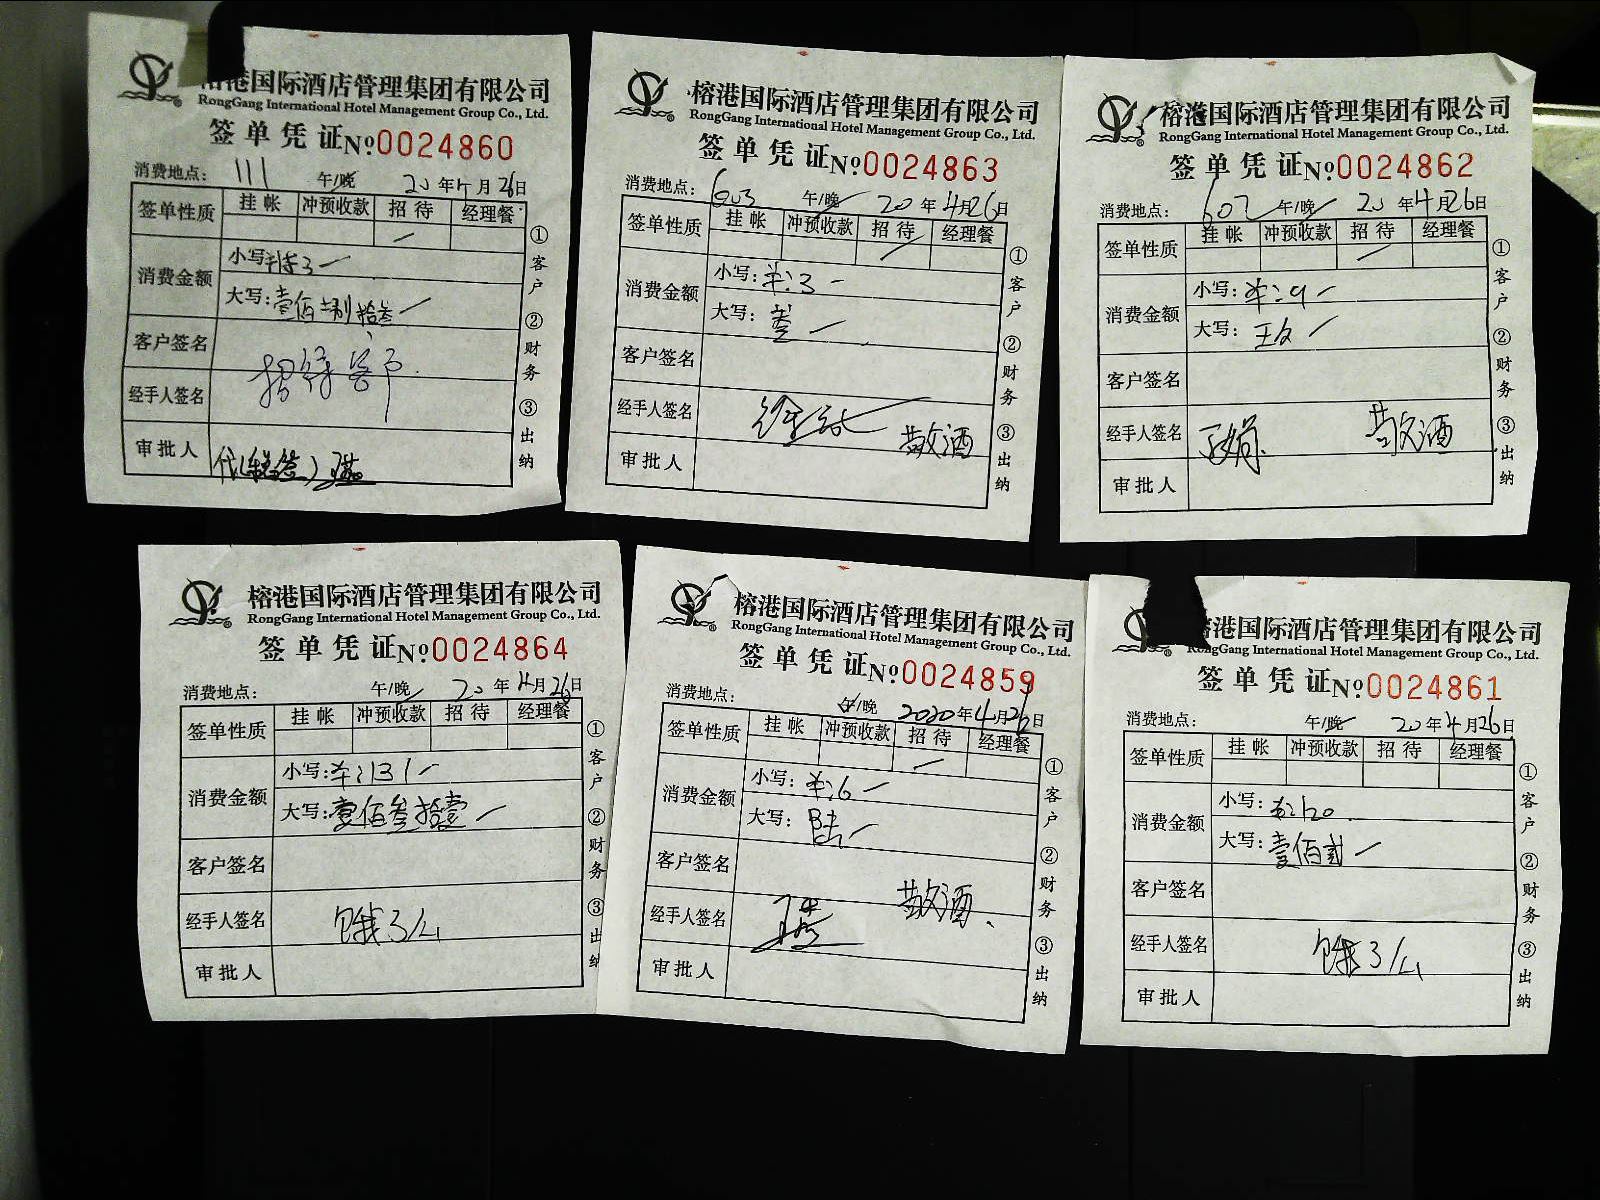 港国际酒店管理集团有限公司
RongGang International Hotel Management Group Co., Ltd.
签单凭证No0024860
消费地点: 111 午/晚 20年4月26日
签单性质 挂帐 冲预收款 招待 经理餐
消费金额 小写:
大写: 壹佰 拾叁
客户签名
招待客户
经手人签名
审批人
①客户 ②财务 ③出纳
榕港国际酒店管理集团有限公司
RongGang International Hotel Management Group Co., Ltd.
签单凭证No0024863
消费地点: 603 午/晚 20年4月26日
签单性质 挂帐 冲预收款 招待 经理餐
消费金额 小写: 3
大写: 叁
客户签名
经手人签名
散酒
审批人
①客户 ②财务 ③出纳
榕港国际酒店管理集团有限公司
RongGang International Hotel Management Group Co., Ltd.
签单凭证No0024862
消费地点: 602 午/晚 20年4月26日
签单性质 挂帐 冲预收款 招待 经理餐
消费金额 小写: 9
大写:
客户签名
经手人签名 散酒
审批人
①客户 ②财务 ③出纳
榕港国际酒店管理集团有限公司
RongGang International Hotel Management Group Co., Ltd.
签单凭证No0024864
消费地点: 午/晚 20年4月26日
签单性质 挂帐 冲预收款 招待 经理餐
消费金额 小写: 131
大写: 壹佰叁拾壹
客户签名
经手人签名 饿了么
审批人
①客户 ②财务 ③出纳
榕港国际酒店管理集团有限公司
RongGang International Hotel Management Group Co., Ltd.
签单凭证No0024859
消费地点: 午/晚 2020年4月26日
签单性质 挂帐 冲预收款 招待 经理餐
消费金额 小写: 6
大写: 陆
客户签名
散酒
经手人签名
审批人
①客户 ②财务 ③出纳
榕港国际酒店管理集团有限公司
RongGang International Hotel Management Group Co., Ltd.
签单凭证No0024861
消费地点: 午/晚 20年4月26日
签单性质 挂帐 冲预收款 招待 经理餐
消费金额 小写: 120
大写: 壹佰贰
客户签名
经手人签名 饿了么
审批人
①客户 ②财务 ③出纳